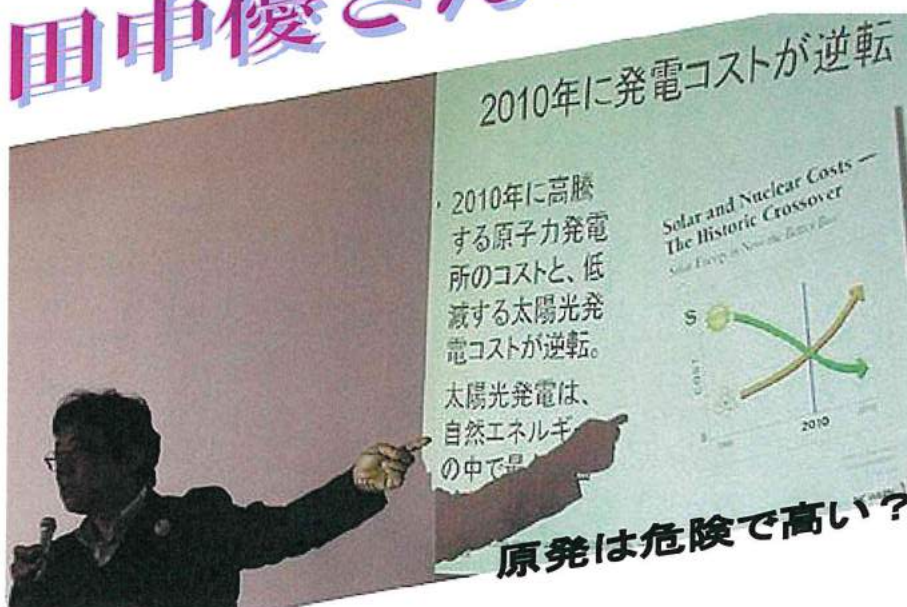 田中優さん
2010年に発電コストが逆転
・2010年に高騰
する原子力発電
所のコストと、低
減する太陽光発
電コストが逆転。
太陽光発電は、
自然エネルギ
の中で最
Solar and Nuclear Costs —
The Historic Crossover
Solar Energy is Now the Better Buy
$
COST
2010
原発は危険で高い?